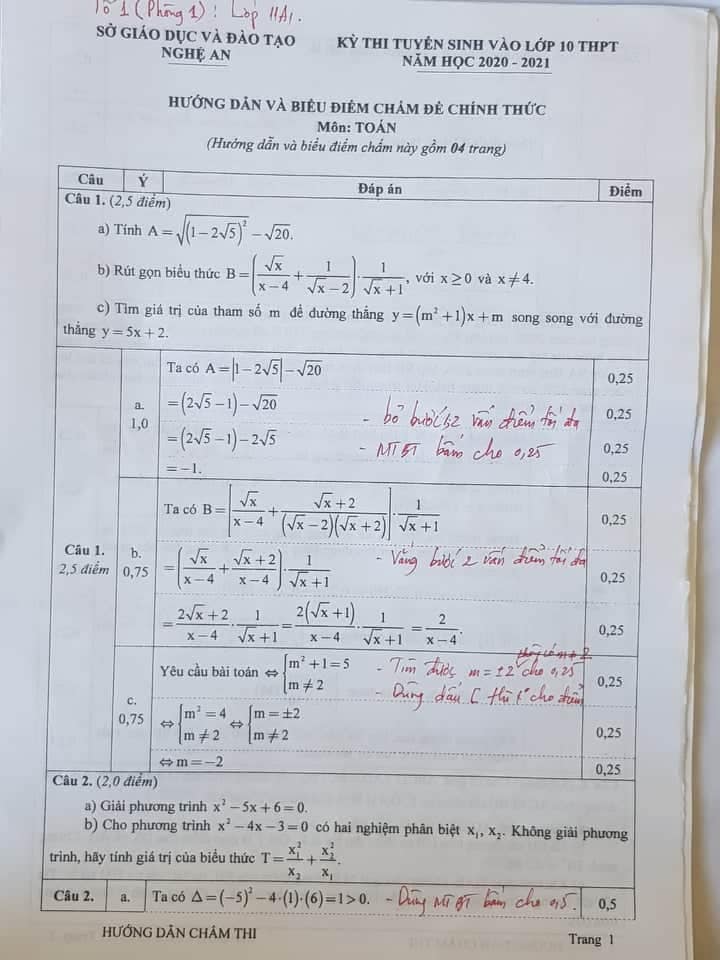 Tổ 1 (Phòng 1) : Lớp 11A1.
SỞ GIÁO DỤC VÀ ĐÀO TẠO
NGHỆ AN
KỲ THI TUYỂN SINH VÀO LỚP 10 THPT
NĂM HỌC 2020 - 2021
HƯỚNG DẪN VÀ BIỂU ĐIỂM CHẤM ĐỀ CHÍNH THỨC
Môn: TOÁN
(Hướng dẫn và biểu điểm chấm này gồm 04 trang)
Câu Ý Đáp án Điểm
Câu 1. (2,5 điểm)
a) Tính A = √((1 − 2√5)²) − √20.
b) Rút gọn biểu thức B = (√x/(x − 4) + 1/(√x − 2)) · 1/(√x + 1), với x ≥ 0 và x ≠ 4.
c) Tìm giá trị của tham số m để đường thẳng y = (m² + 1)x + m song song với đường
thẳng y = 5x + 2.
Câu 1.
2,5 điểm
a.
1,0
Ta có A = |1 − 2√5| − √20 0,25
= (2√5 − 1) − √20 - bỏ bước 2 vẫn điểm tối đa 0,25
= (2√5 − 1) − 2√5 - MTBT bấm cho 0,25 0,25
= −1. 0,25
b.
0,75
Ta có B = [√x/(x − 4) + (√x + 2)/((√x − 2)(√x + 2))] · 1/(√x + 1) 0,25
= (√x/(x − 4) + (√x + 2)/(x − 4)) · 1/(√x + 1) - Vắng bước 2 vẫn điểm tối đa 0,25
= (2√x + 2)/(x − 4) · 1/(√x + 1) = 2(√x + 1)/(x − 4) · 1/(√x + 1) = 2/(x − 4). 0,25
c.
0,75
không có m ≠ 2
Yêu cầu bài toán ⇔ { m² + 1 = 5 - Tìm được m = ±2 cho 0,25
m ≠ 2 - Dùng dấu [ thì k° cho điểm 0,25
⇔ { m² = 4 ⇔ { m = ±2
m ≠ 2 m ≠ 2 0,25
⇔ m = −2 0,25
Câu 2. (2,0 điểm)
a) Giải phương trình x² − 5x + 6 = 0.
b) Cho phương trình x² − 4x − 3 = 0 có hai nghiệm phân biệt x₁, x₂. Không giải phương
trình, hãy tính giá trị của biểu thức T = x₁²/x₂ + x₂²/x₁.
Câu 2. a. Ta có Δ = (−5)² − 4·(1)·(6) = 1 > 0. - Dùng MTBT bấm cho 0,5. 0,5
HƯỚNG DẪN CHẤM THI
Trang 1